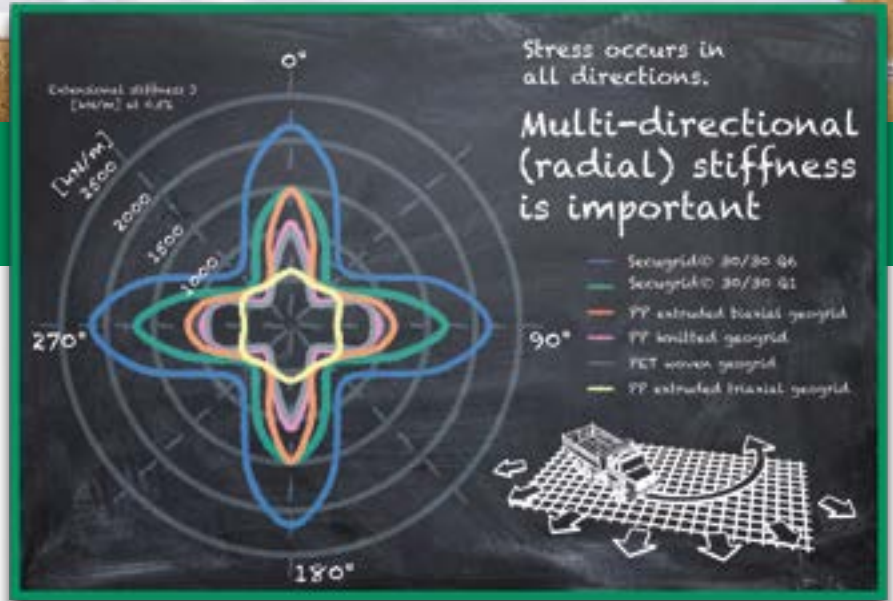 0°
Extensional stiffness J
[kN/m] at
[kN/m]
2500
2000
1500
1000
270°
90°
180°
Stress occurs in
all directions.
Multi-directional
(radial) stiffness
is important
Secugrid© 30/30 Q6
Secugrid© 30/30 Q1
PP extruded biaxial geogrid
PP knitted geogrid
PET woven geogrid
PP extruded triaxial geogrid